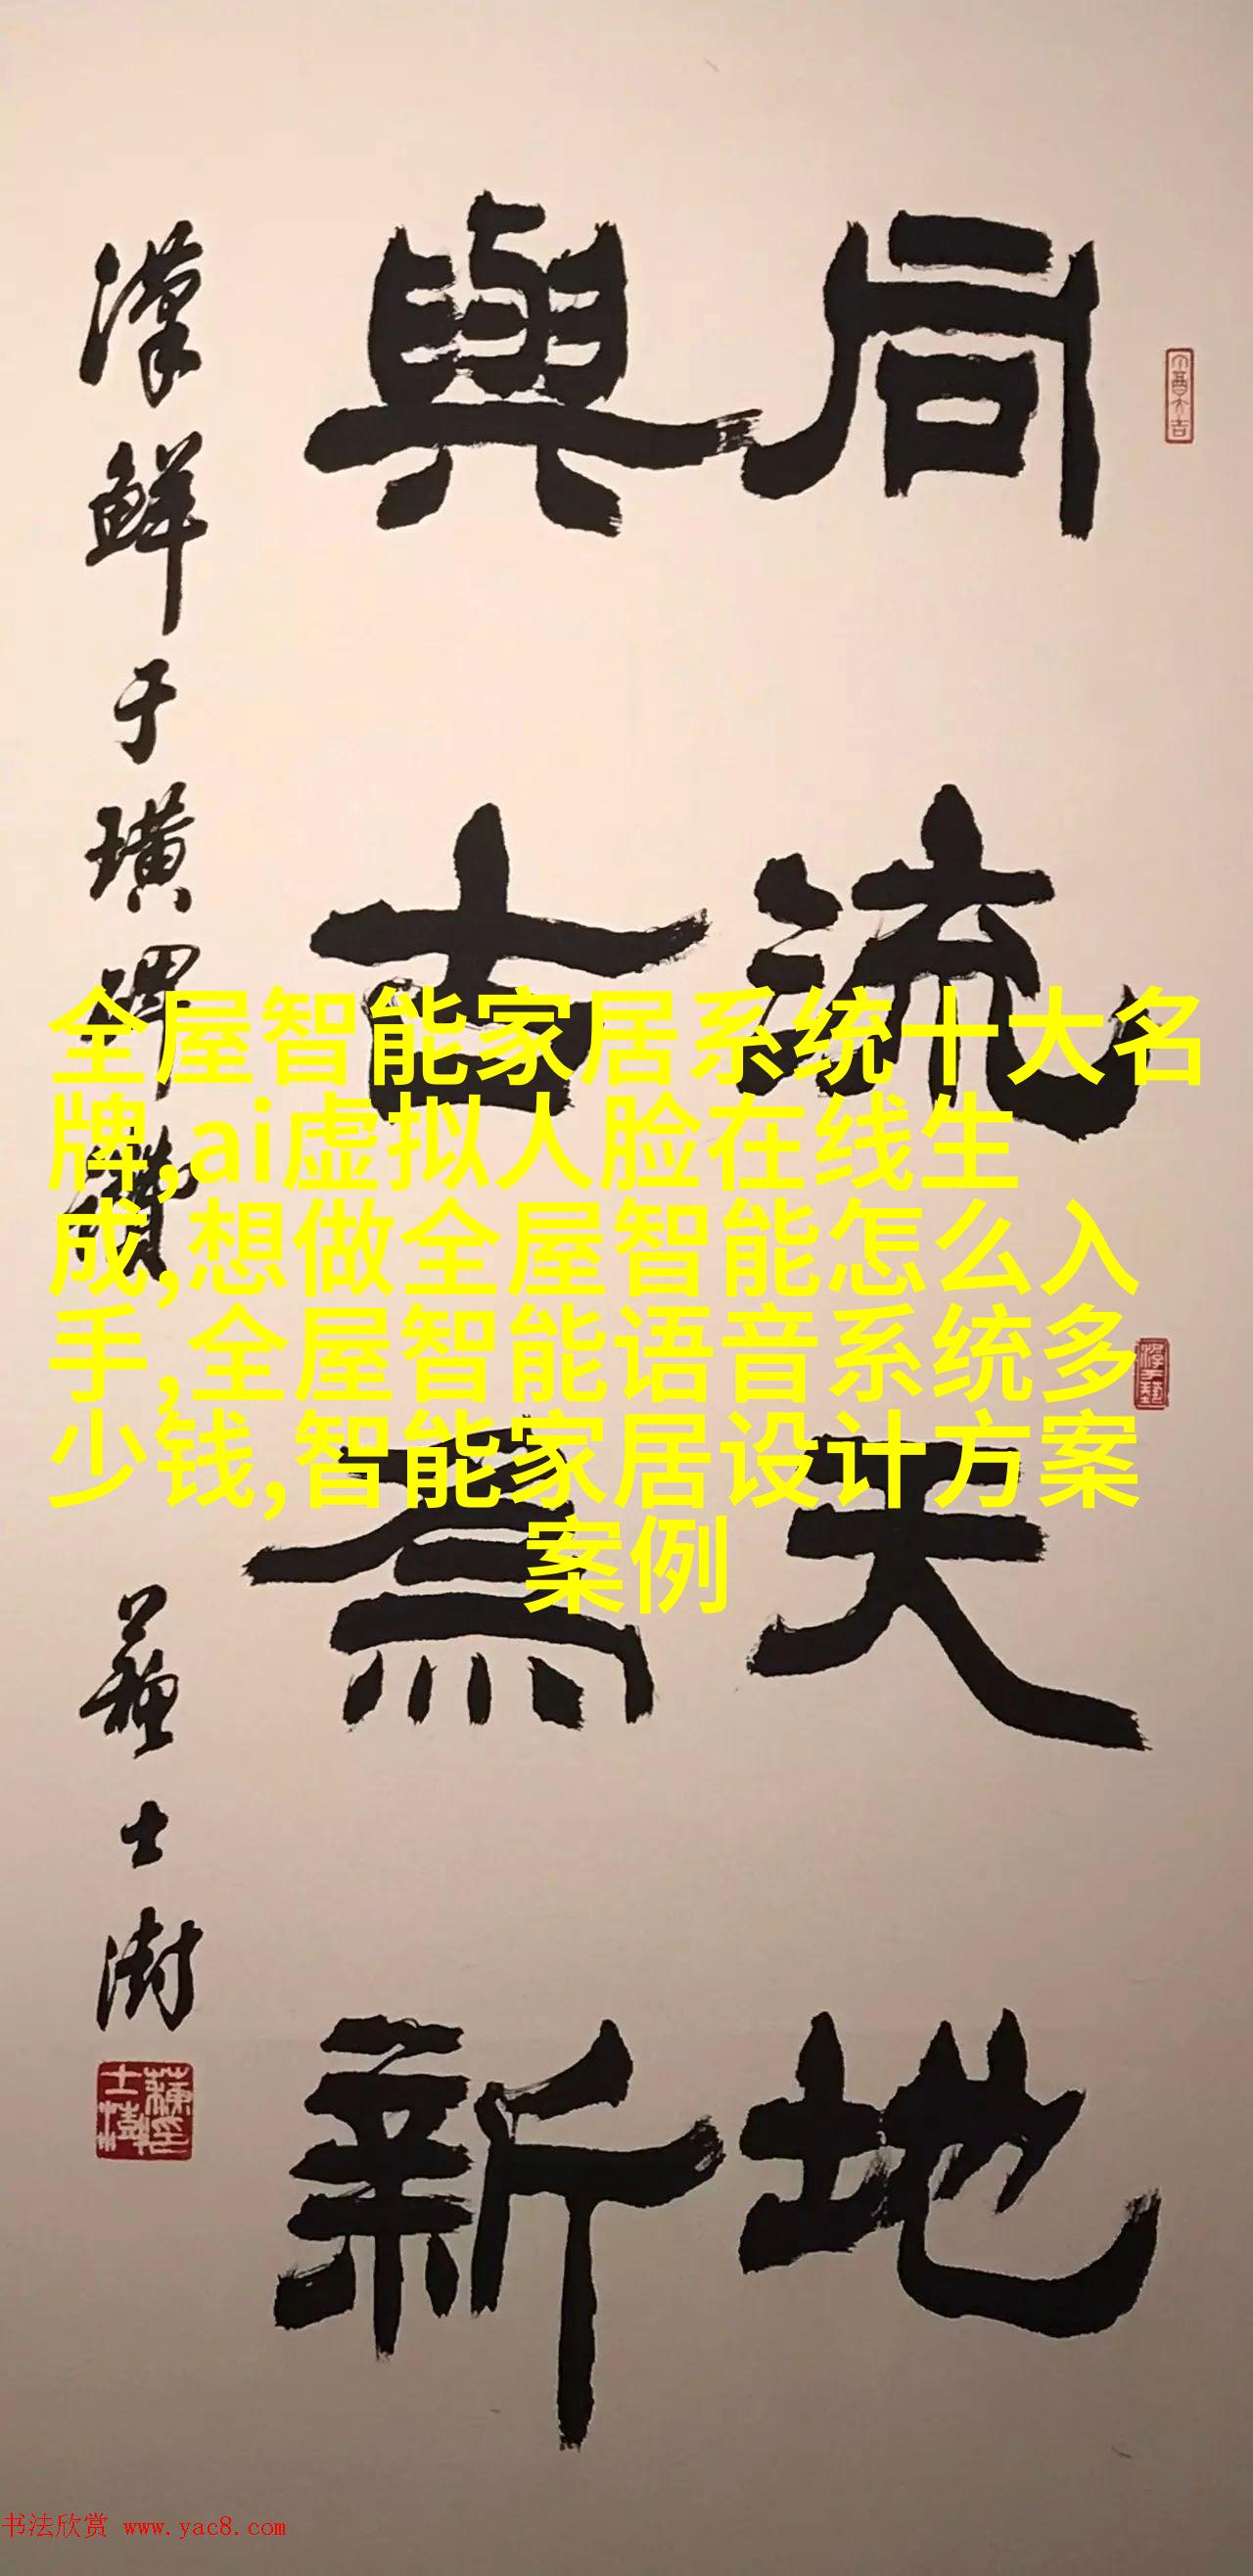 同流天地
與古為新
漢鮮于璜碑
蘇士澍
全屋智能家居系统十大名
牌,ai虚拟人脸在线生
成,想做全屋智能怎么入
手,全屋智能语音系统多
少钱,智能家居设计方案
案例
书法欣赏 www.yac8.com